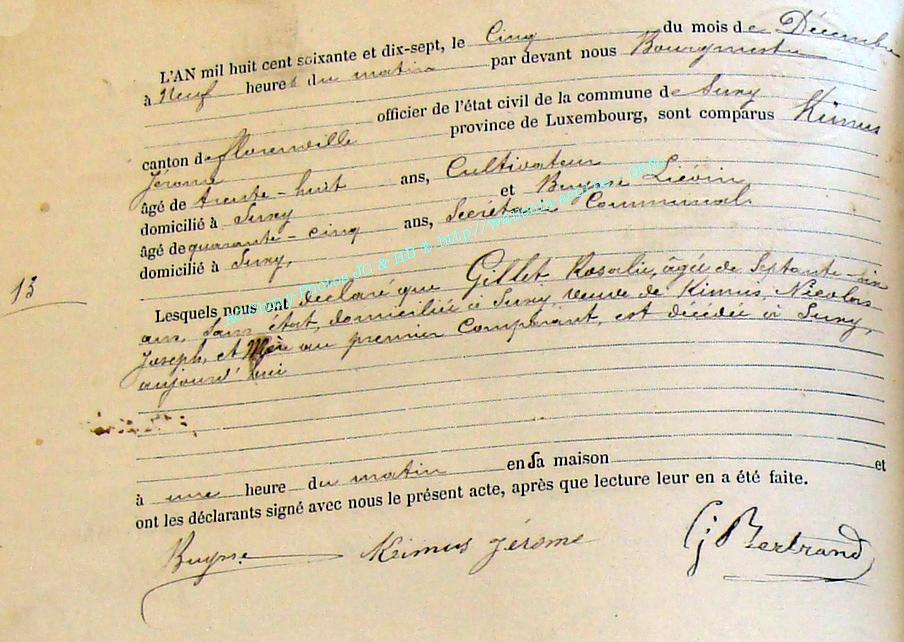 L'AN mil huit cent soixante et dix-sept, le Cinq du mois de Décembre
à Neuf heures du matin par devant nous Bourgmestre
officier de l'état civil de la commune de Suxy
canton de florenville province de Luxembourg, sont comparus Kimus
Jérome
âgé de trente-huit ans, Cultivateur
domicilié à Suxy et Buysse Liévin
âgé de quarante-cinq ans, Secrétaire Communal
domicilié à Suxy,
13
Lesquels nous ont déclaré que Gillet Rosalie, âgée de Septante-six
ans, sans état, domiciliée à Suxy, veuve de Kimus, Nicolas
Joseph, et Mère au premier Comparant, est décédée à Suxy,
aujourd'hui
à une heure du matin en sa maison et
ont les déclarants signé avec nous le présent acte, après que lecture leur en a été faite.
Buysse Keimus Jérome GJBertrand
Photos JC & HB © http://